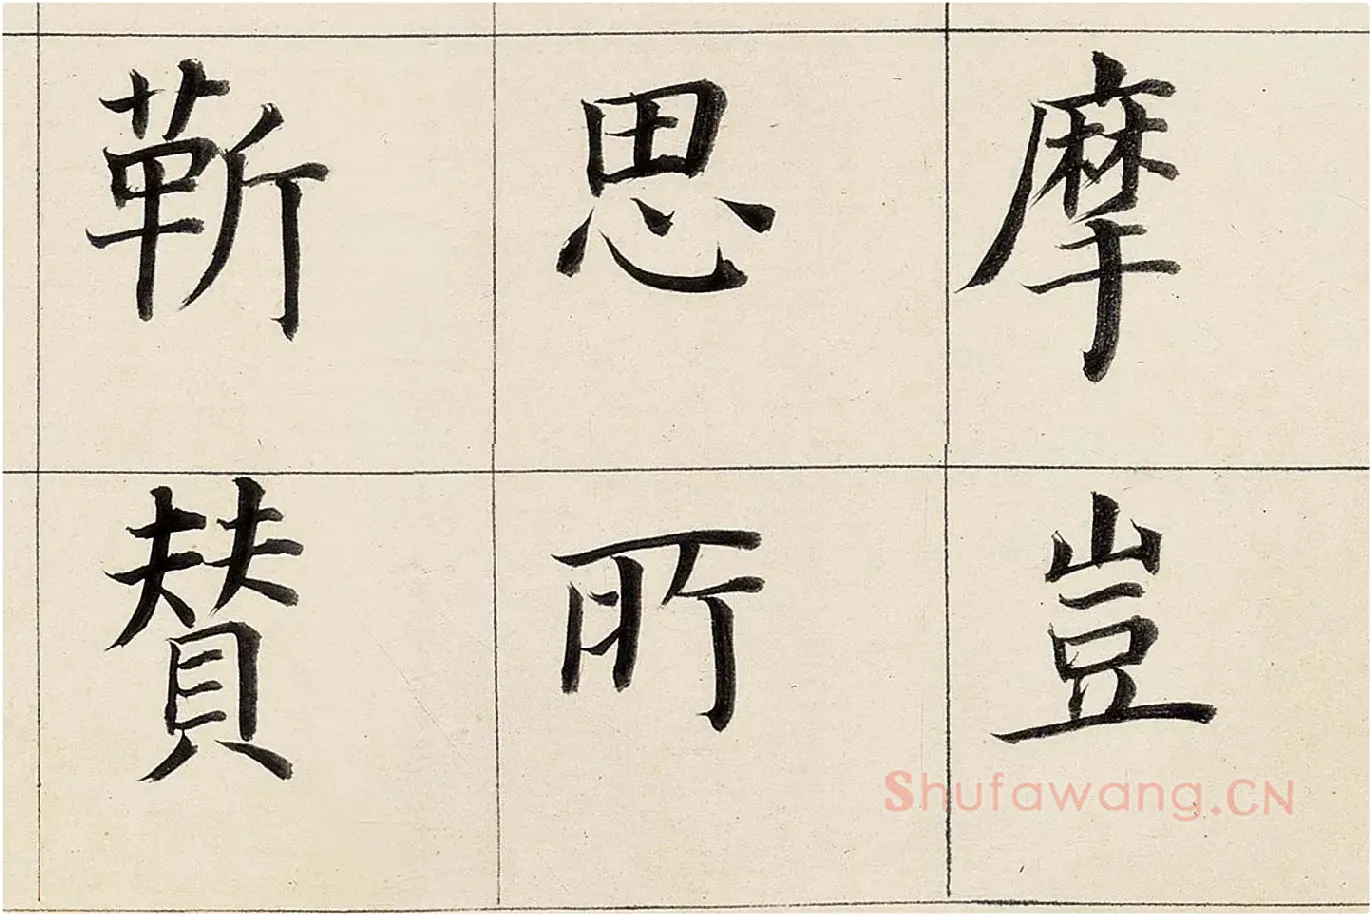 摩豈
思所
靳賛
Shufawang.CN